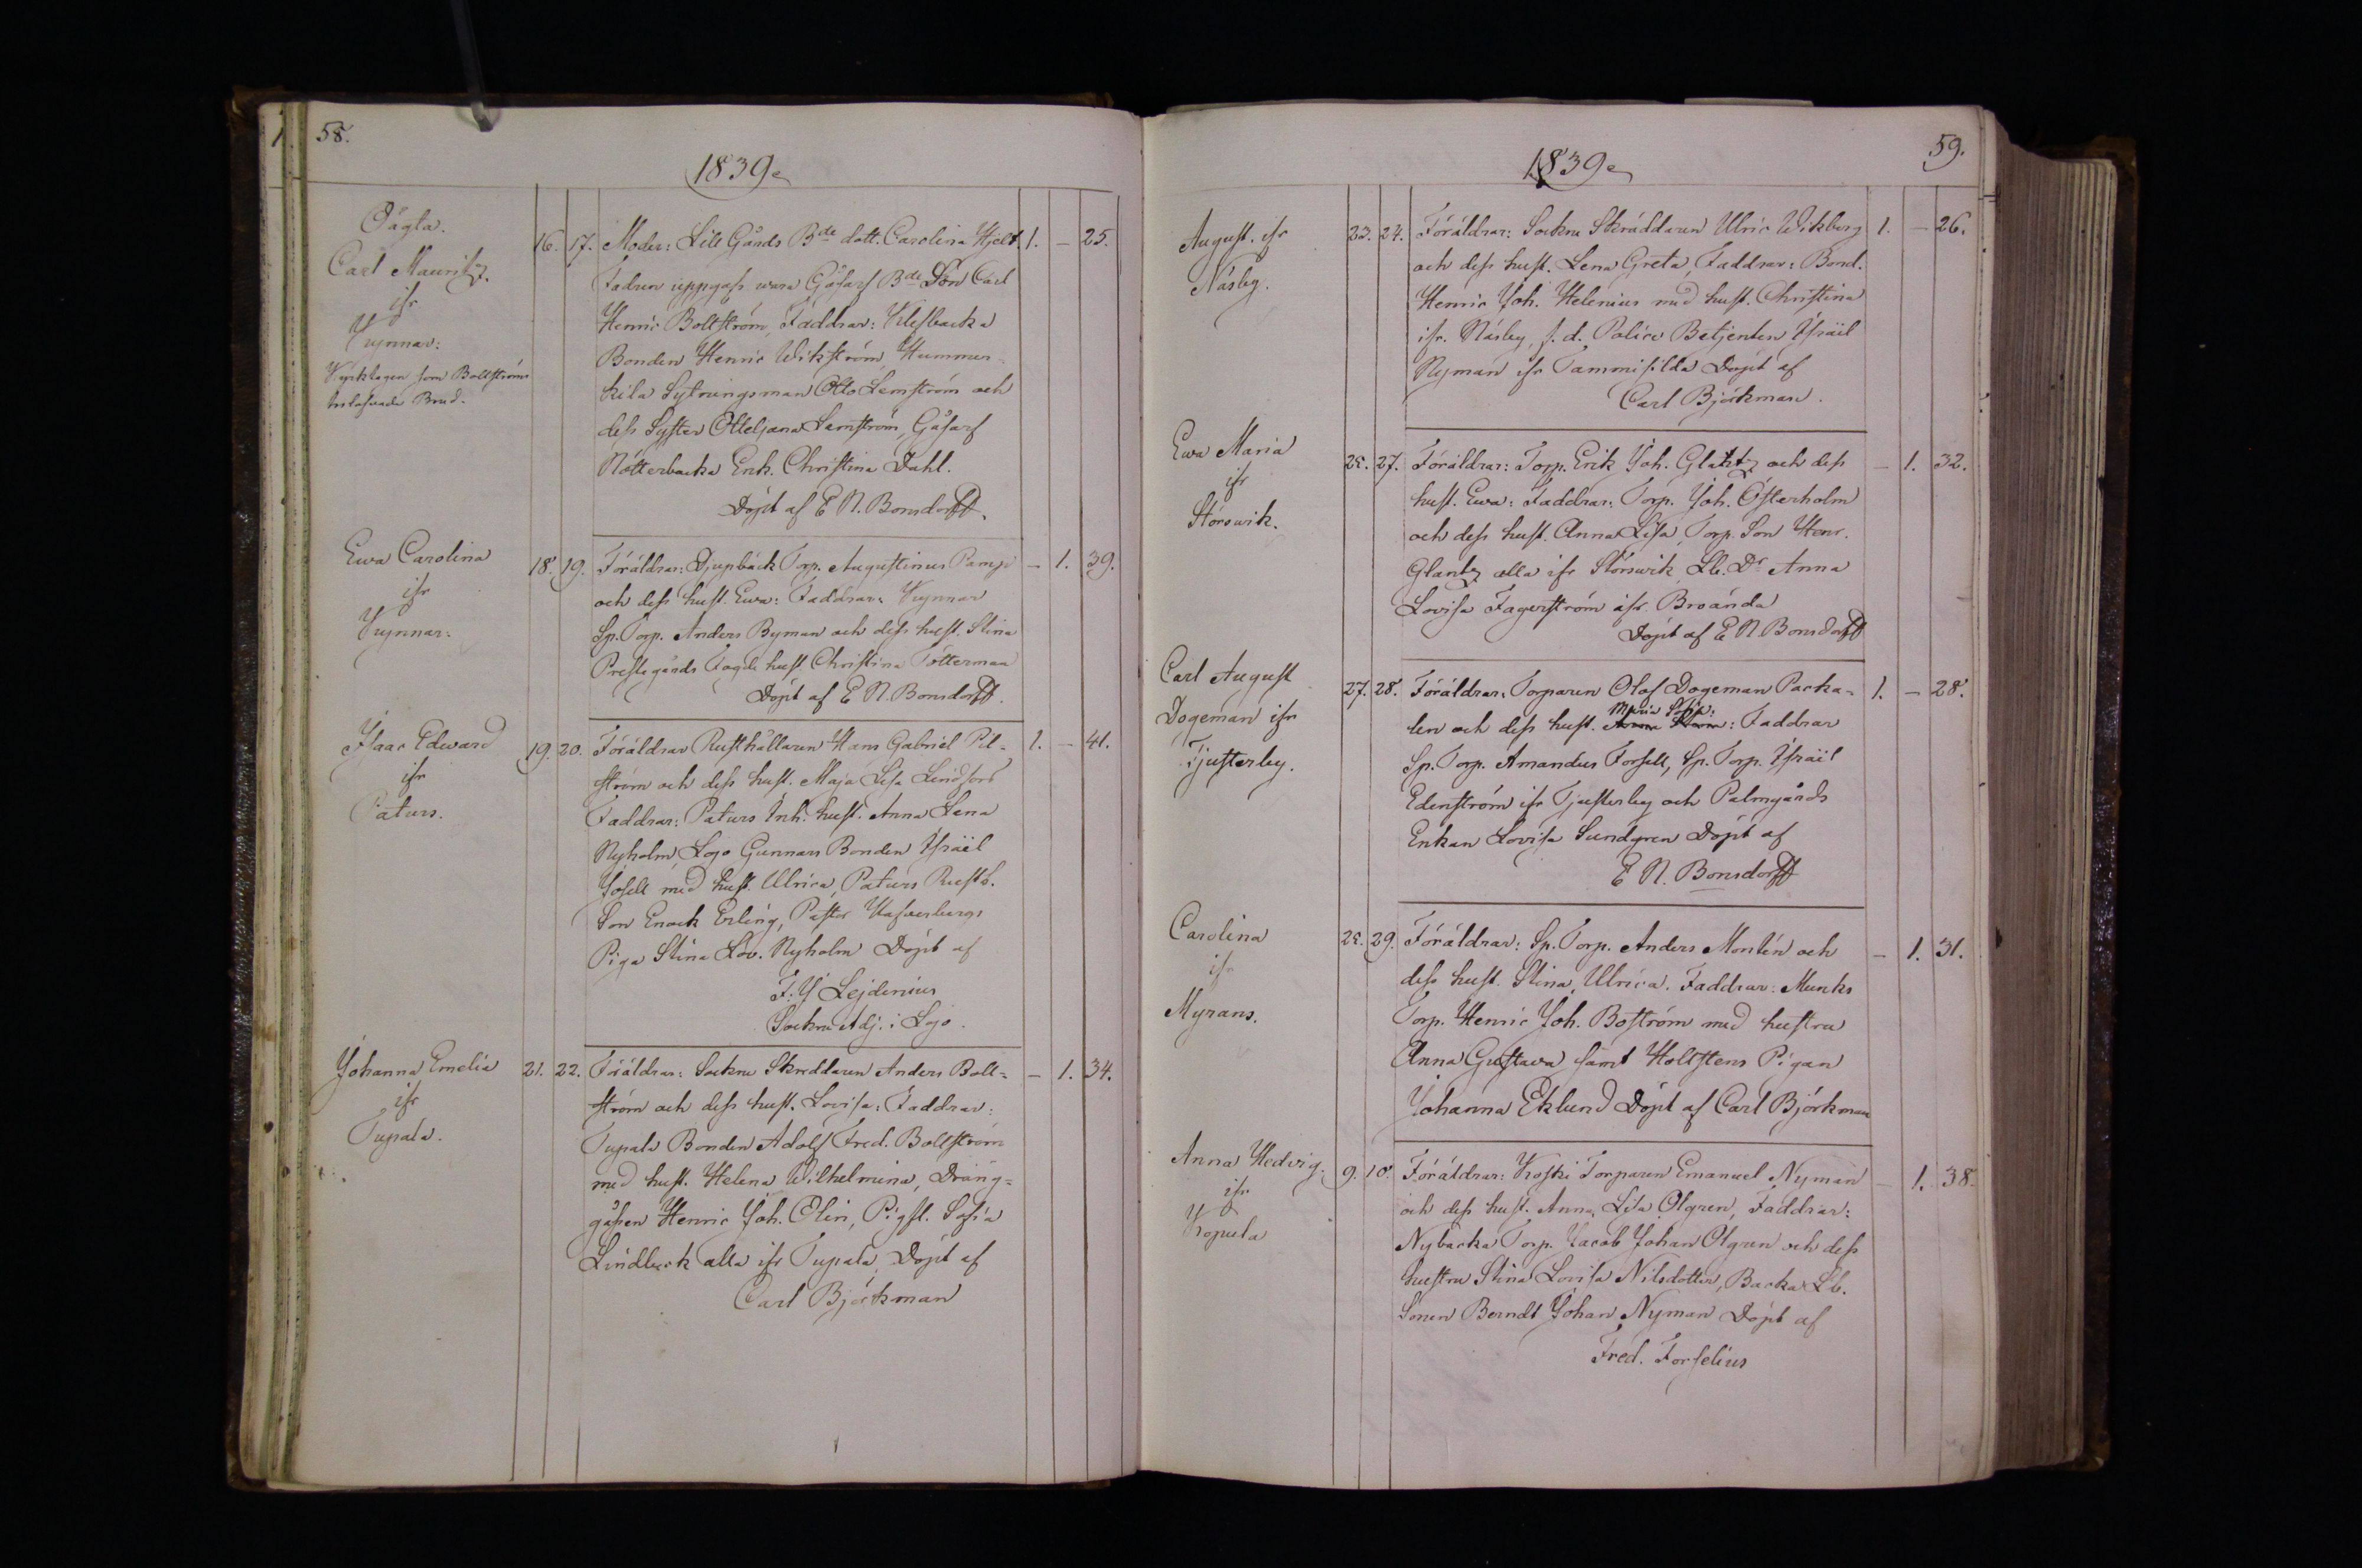 58.
1839
Oägta.
Carl Mauritz.
ifr
Vynnar:
Kyrktagen som Boltströms
trolofvade Brud.
16. 17. Moder: Lill Gårds Bde dott. Carolina Hjelt 1. — 25.
Fadren uppgafs vara Gåsarf Bde Son Carl
Henric Boltström, Faddrar: Klefbacka
Bonden Henric Wikström, Hummer-
kila Sytningsman Otto Lemström och
dess Syster Otteljana Lemström, Gåsarf
Nötterbacka Enk. Christina Dahl.
Döpt af E N. Bonsdorff.
Ewa Carolina
ifr
Vynnar:
18. 19. Föräldrar: Djupbäck Torp. Augustinus Pamp — 1. 39.
och dess hust. Ewa: Faddrar: Vynnar
Sp. Torp. Anders Byman och dess hust. Stina
Prestegårds Fogde hust. Christina Tötterman
Döpt af E N. Bonsdorff.
Isaac Edward
ifr
Paturs.
19. 20. Föräldrar Rusthållaren Hans Gabriel Pil- 1. — 41.
ström och dess hust. Maja Lisa Lindfors
Faddrar: Paturs Inh. hust. Anna Lena
Nyholm, Lojo Gunnars Bonden Israël
Josell med hust. Ulrica, Paturs Rusth.
Son Enock Erling, Pastor
Piga Stina Lov. Nyholm Döpt af
F: J Lejdenius
Sockne Adj. i Lojo.
Johanna Emelia
ifr
Tupala.
21. 22. Föräldrar: Sockne Skreddaren Anders Bolt- — 1. 34.
ström och dess hust. Lovisa: Faddrar:
Tupala Bonden Adolf Fred. Boltström
med hust. Helena Wilhelmina, Dräng-
gåssen Henric Joh. Olin, Pigfl. Sofia
Lindbeck alla ifr Tupala, Döpt af
Carl Björkman
59.
1839
August. ifr
Näsby.
23. 24. Föräldrar: Sockne Skräddaren Ulric Wikberg 1. — 26.
och dess hust. Lena Greta, Faddrar: Bond.
Henric Joh. Helenius med hust. Christina
ifr. Näsby, f. d. Police Betjenten Israël
Nyman ifr Tammisilda Döpt af
Carl Björkman.
Ewa Maria
ifr
Störsvik.
25. 27. Föräldrar: Torp. Erik Joh. Glantz och dess — 1. 32.
hust. Ewa: Faddrar: Torp. Joh. Österholm
och dess hust. Anna Lisa, Torp. Son Henr.
Glantz alla ifr Störsvik, Lb. Dr Anna
Lovisa Fagerström ifr. Broända
Döpt af E N. Bonsdorff
Carl August
Dogeman ifr
Tjusterby.
27. 28. Föräldrar: Torparen Olof Dogeman Packa- 1. — 28.
Maria Sofia:
len och dess hust. : Faddrar
Sp. Torp. Amandus Forsell, Sp. Torp. Israël
Edenström ifr Tjusterby och Palmgårds
Enkan Lovisa Sundgren Döpt af
E N. Bonsdorff
Carolina
ifr
Myrans.
25. 29. Föräldrar: Sp. Torp. Anders Montén och — 1. 31.
dess hust. Stina, Ulrica. Faddrar: Munks
Torp. Henric Joh. Boström med hustru
Anna Gustava samt Holtstens Pigan
Johanna Eklund Döpt af Carl Björkman
Anna Hedvig.
ifr
Kopula
9. 10. Föräldrar: Koski Torparen Emanuel Nyman — 1. 38.
och dess hust. Anna Lisa Olgren, Faddrar:
Nybacka Torp. Jacob Johan Olgren och dess
hustru Stina Lovisa Nilsdotter, Backa Lb.
Sonen Berndt Johan Nyman Döpt af
Fred. Forselius